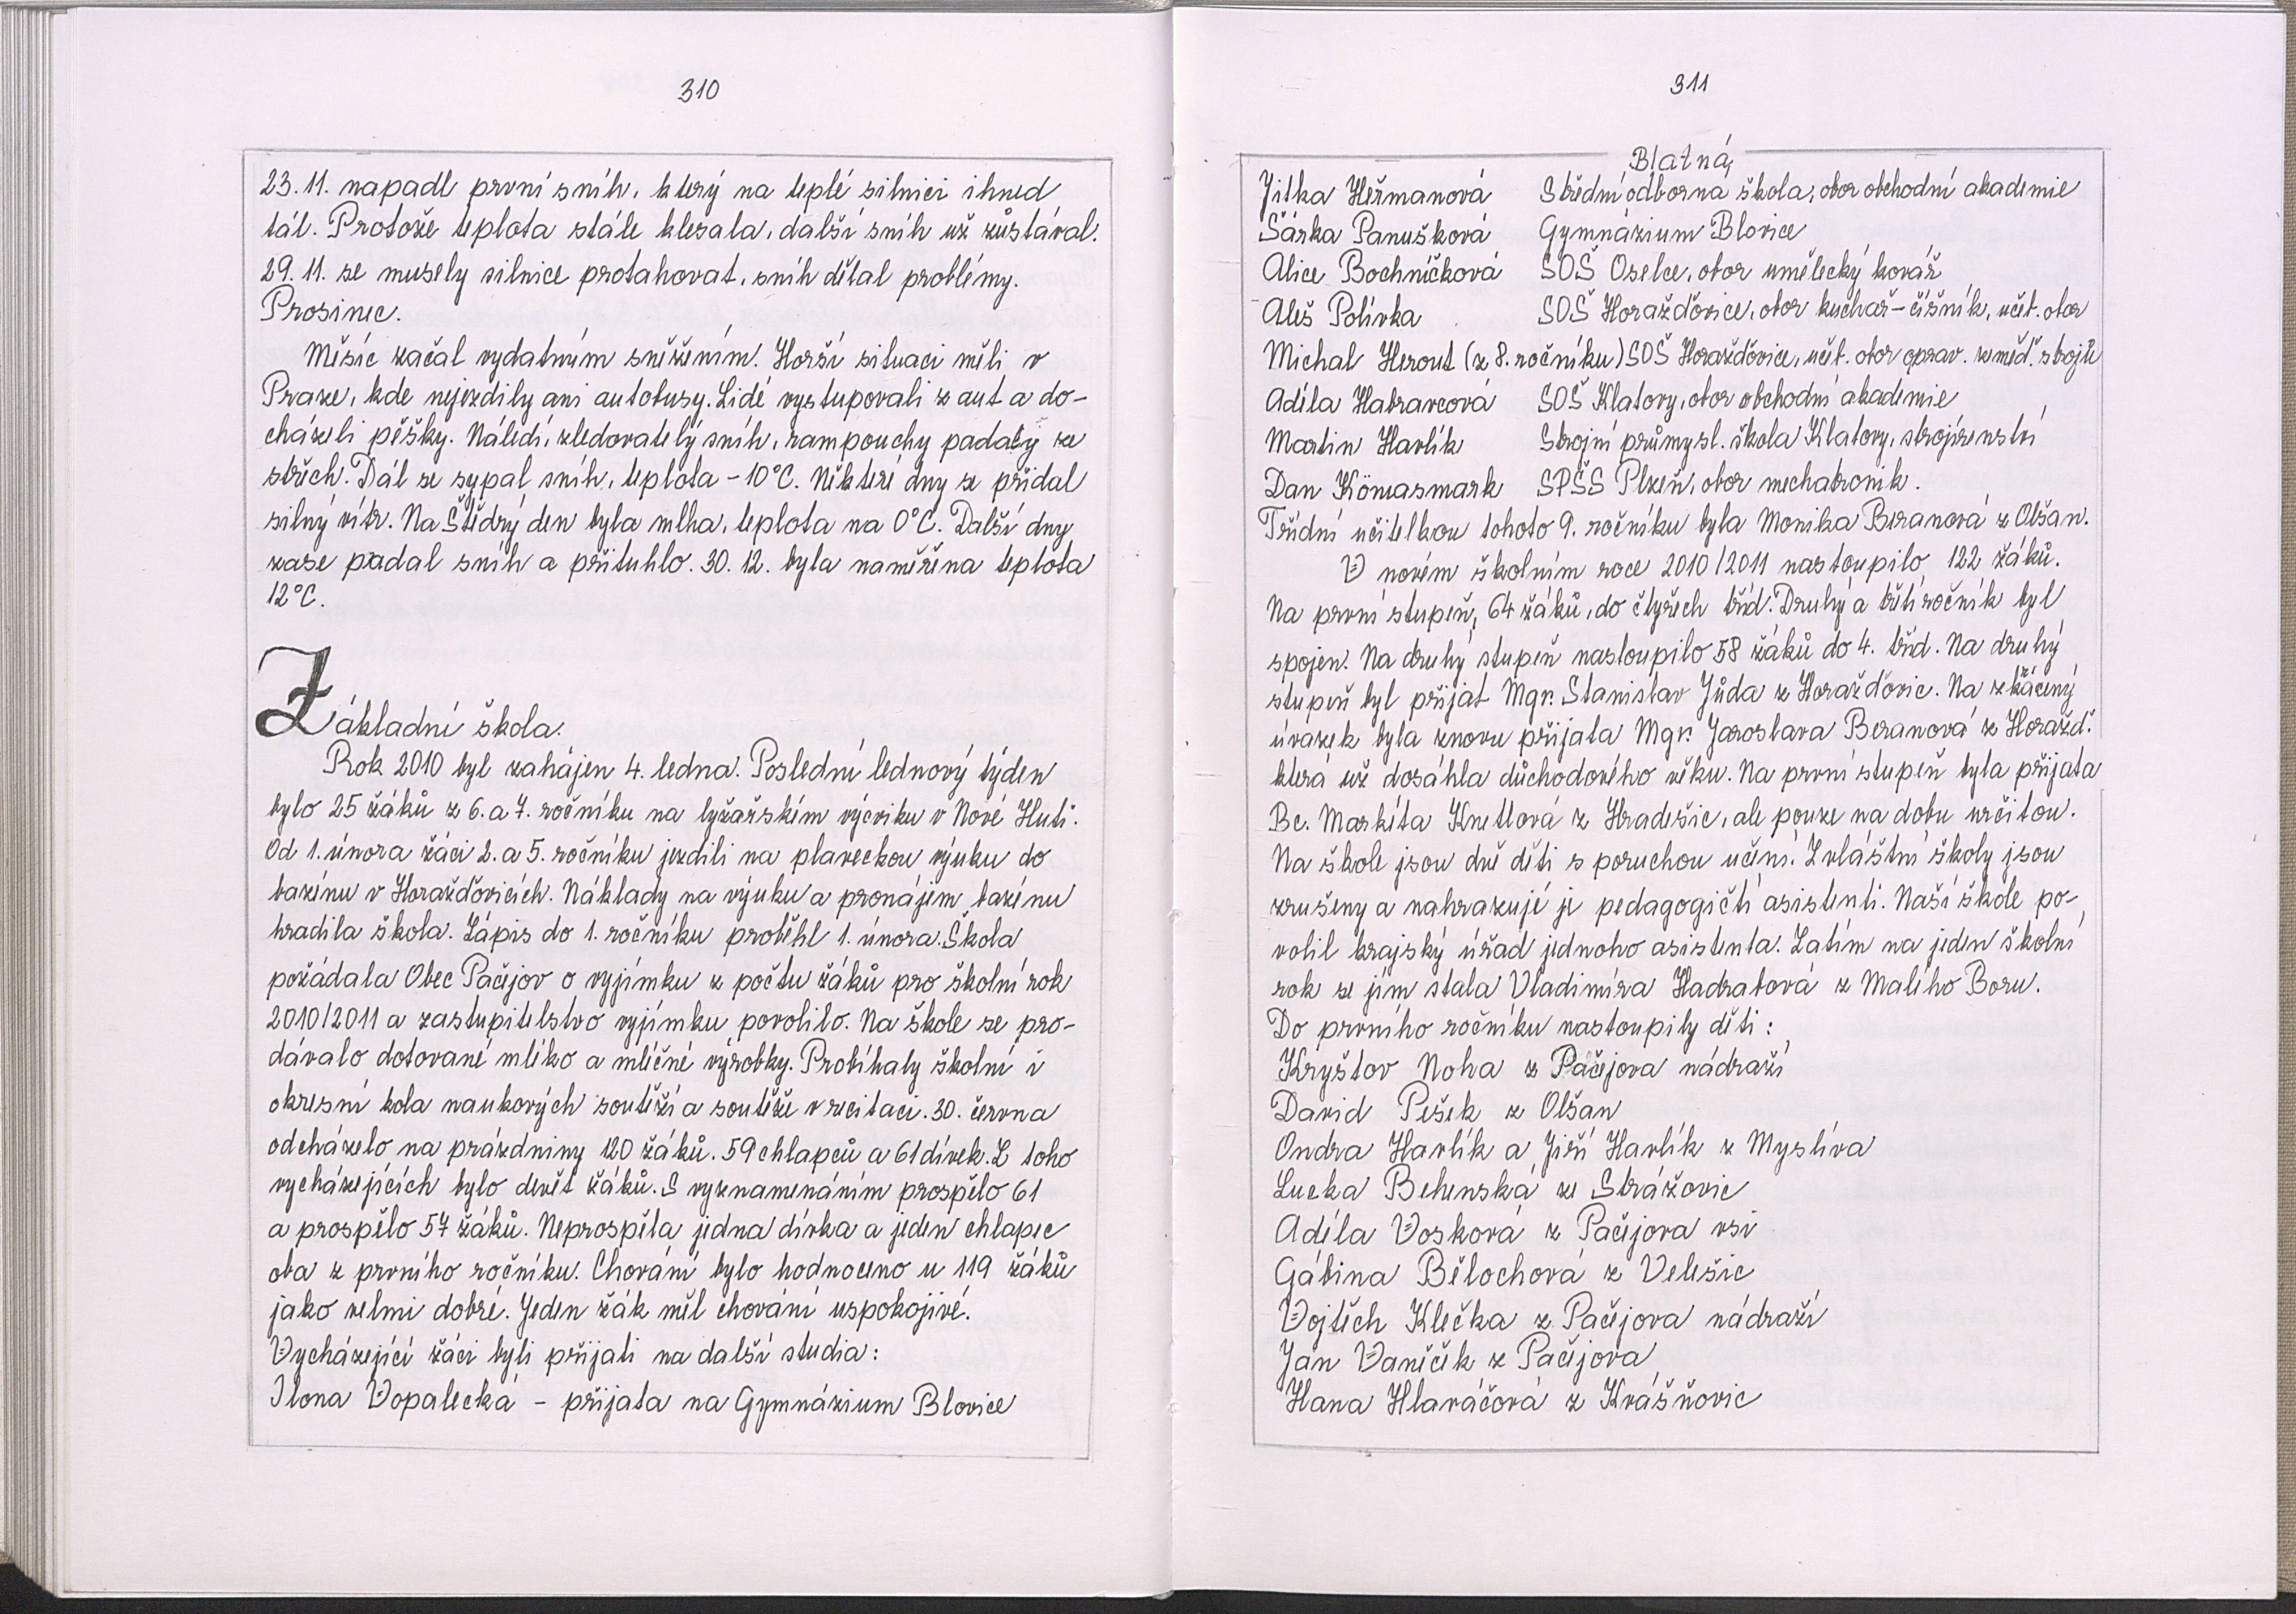 310
23. 11. napadl první sníh, který na teplé silnici ihned
tál. Protože teplota stále klesala, další sníh už zůstával.
29. 11. se musely silnice protahovat, sníh dělal problémy.
Prosinec.
Měsíc začal vydatným sněžením. Horší situaci měli v
Praze, kde nejezdily ani autobusy. Lidé vystupovali z aut a do-
cházeli pěšky. Náledí, zledovatělý sníh, rampouchy padaly ze
střech. Dál se sypal sníh, teplota - 10°C. Některé dny se přidal
silný vítr. Na Štědrý den byla mlha, teplota na 0°C. Další dny
zase padal sníh a přituhlo. 30. 12. byla naměřena teplota
12°C.
Základní škola.
Rok 2010 byl zahájen 4. ledna. Poslední lednový týden
bylo 25 žáků z 6. a 7. ročníku na lyžařském výcviku v Nové Huti.
Od 1. února žáci 2. a 5. ročníku jezdili na plaveckou výuku do
bazénu v Horažďovicích. Náklady na výuku a pronájem bazénu
hradila škola. Zápis do 1. ročníku proběhl 1. února. Škola
požádala Obec Pačejov o vyjímku z počtu žáků pro školní rok
2010/2011 a zastupitelstvo vyjímku povolilo. Na škole se pro-
dávalo dotované mléko a mléčné výrobky. Probíhaly školní i
okresní kola naukových soutěží a soutěže v recitaci. 30. června
odcházelo na prázdniny 120 žáků. 59 chlapců a 61 dívek. Z toho
vycházejících bylo devět žáků. S vyznamenáním prospělo 61
a prospělo 57 žáků. Neprospěla jedna dívka a jeden chlapec
oba z prvního ročníku. Chování bylo hodnoceno u 119 žáků
jako velmi dobré. Jeden žák měl chování uspokojivé.
Vycházející žáci byli přijati na další studia:
Ilona Vopalecká - přijata na Gymnázium Blovice
311
Blatná,
Jitka Heřmanová Střední odborná škola, obor obchodní akademie
Šárka Panušková Gymnázium Blovice
Alice Bochníčková SOŠ Oselce, obor umělecký kovář
Aleš Polívka SOŠ Horažďovice, obor kuchař - číšník, učeb. obor
Michal Herout (z 8. ročníku) SOŠ Horažďovice, učeb. obor oprav. zeměd. strojů
Adéla Habrarcová SOŠ Klatovy, obor obchodní akademie
Martin Havlík Strojní průmysl. škola Klatovy, strojírenství
Dan Kömasmark SPŠS Plzeň, obor mechatronik.
Třídní učitelkou tohoto 9. ročníku byla Monika Beranová z Olšan.
V novém školním roce 2010/2011 nastoupilo 122 žáků.
Na první stupeň, 64 žáků, do čtyřech tříd. Druhý a třetí ročník byl
spojen. Na druhý stupeň nastoupilo 58 žáků do 4. tříd. Na druhý
stupeň byl přijat Mgr. Stanislav Jůda z Horažďovic. Na zkácený
úvazek byla znovu přijata Mgr. Jaroslava Beranová z Horažď.
která už dosáhla důchodového věku. Na první stupeň byla přijata
Bc. Markéta Knetlová z Hradešic, ale pouze na dobu určitou.
Na škole jsou dvě děti s poruchou učení. Zvláštní školy jsou
zrušeny a nahrazují je pedagogičtí asistenti. Naší škole po-
volil krajský úřad jednoho asistenta. Zatím na jeden školní
rok se jím stala Vladimíra Hadrabová z Malého Boru.
Do prvního ročníku nastoupily děti:
Kryštov Noha z Pačejova nádraží
David Pešek z Olšan
Ondra Havlík a Jiří Havlík z Myslíva
Lucka Behenská ze Strážovic
Adéla Vosková z Pačejova vsi
Gábina Bělochová z Velešic
Vojtěch Klečka z Pačejova nádraží
Jan Vaněček z Pačejova
Hana Hlaváčová z Kvášňovic